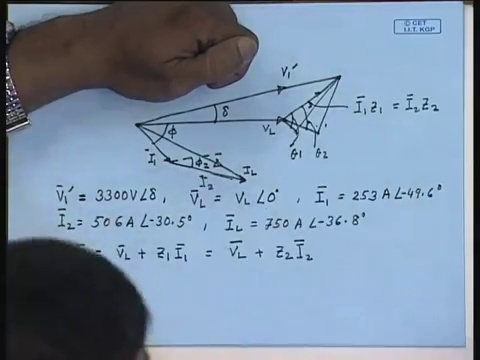 © CET
I.I.T. KGP
V̄₁′
δ
V_L
Ī₁Z₁ = Ī₂Z₂
φ
Ī₁
φ₂
I_L
Ī₂
θ₁ θ₂
V̄₁′ = 3300V∠δ, V̄_L = V_L∠0°, Ī₁ = 253A∠-49.6°
Ī₂ = 506A∠-30.5°, Ī_L = 750A∠-36.8°
= V̄_L + Z₁Ī₁ = V̄_L + Z₂Ī₂